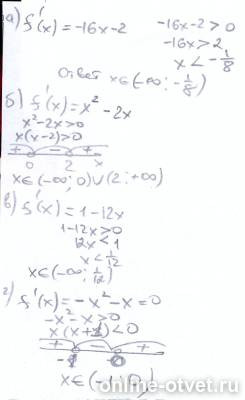 а) f'(x) = -16x-2    -16x-2>0
-16x>2
x < -1/8
Ответ x∈(-∞; -1/8)
б) f'(x) = x² - 2x
x²-2x>0
x(x-2)>0
+ - +
0 2 x
x∈(-∞; 0)∪(2; +∞)
в) f'(x) = 1-12x
1-12x>0
12x<1
x<1/12
x∈(-∞; 1/12)
г) f'(x) = -x²-x=0
-x²-x>0
x(x+1)<0
+ - +
-1 0
x∈(-1; 0)
online-otvet.ru